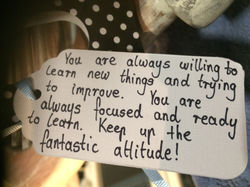 You are always willing to
learn new things and trying
to improve. You are
always focused and ready
to learn. Keep up the
fantastic attitude!